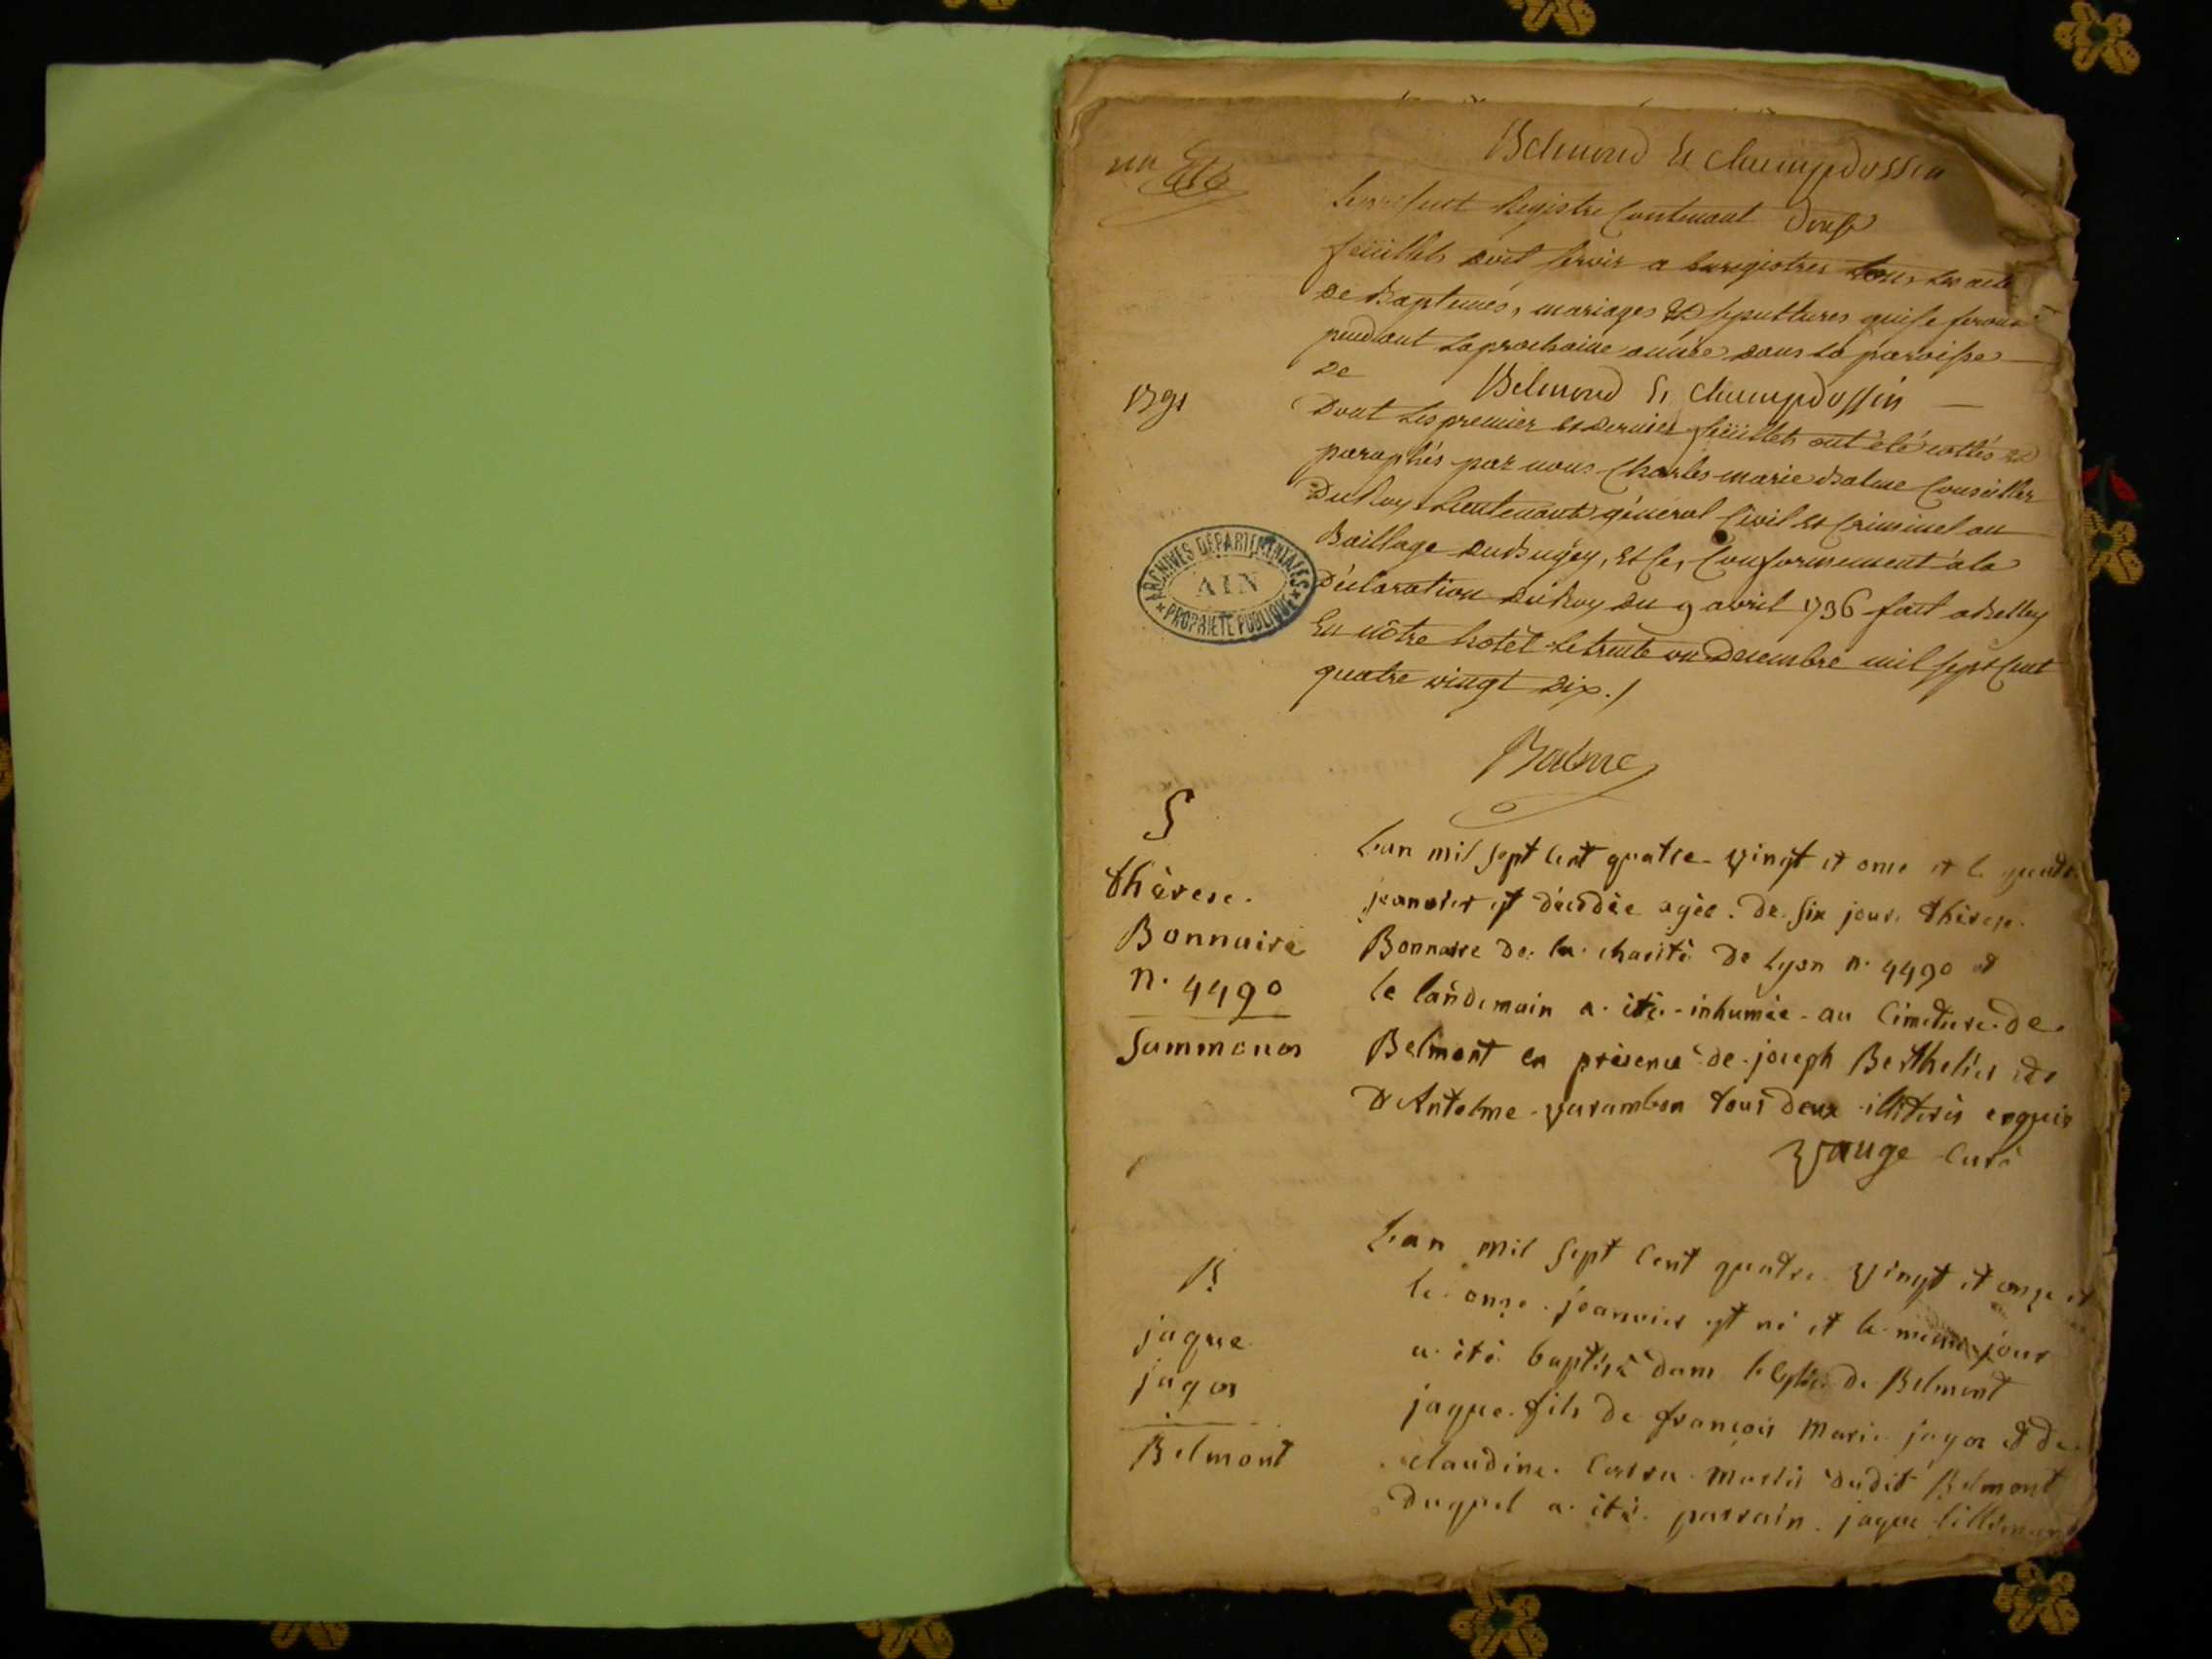 un
Belmond et champdossin
Le present Registre Contenant Douse
feüillets doit servir a Enregistrer tous les acte
de Baptemes, mariages et sepultures qui se feront
pendant la prochaine année dans la paroisse
de Belmond et champdossin
1791
Dont les premier et dernier feüillets ont été cottés et
paraphés par nous Charles marie Balme Conseiller
Du Roy Lieutenant général Civil et Criminel au
Baillage du Bugey, Et Ce, Conformement a la
Déclaration du Roy du 9 avril 1736 fait a Belley
En nôtre hotel le trente un Decembre mil sept Cent
quatre vingt dix./
ARCHIVES DEPARTEMENTALES
AIN
PROPRIETE PUBLIQUE
Balme
S
thèrese.
Bonnaire
n. 4490
Sammonos
L'an mil sept cent quatre-vingt et onse et le
jeanvier est décédée agée. de six jours thèrese.
Bonnaire de. la. charité de Lyon n. 4490 et
le landemain a. été.-inhumée-au Cimetiere.de.
Belmont en présence de-joseph Berthelier
et Antelme-varambon tous deux illiterés enquis
Vauge Curé
B
jaque
jagos
Belmont
L'an mil sept Cent quatre. vingt et onze et
le. onze. jeanvier est né et le même jour
a. été. baptisé dans l'eglise de Belmont
jaque. fils de françois Marie jagos et de
claudine. Carra. Mariés dudit Belmont
Duquel a. été. parrain. jaque